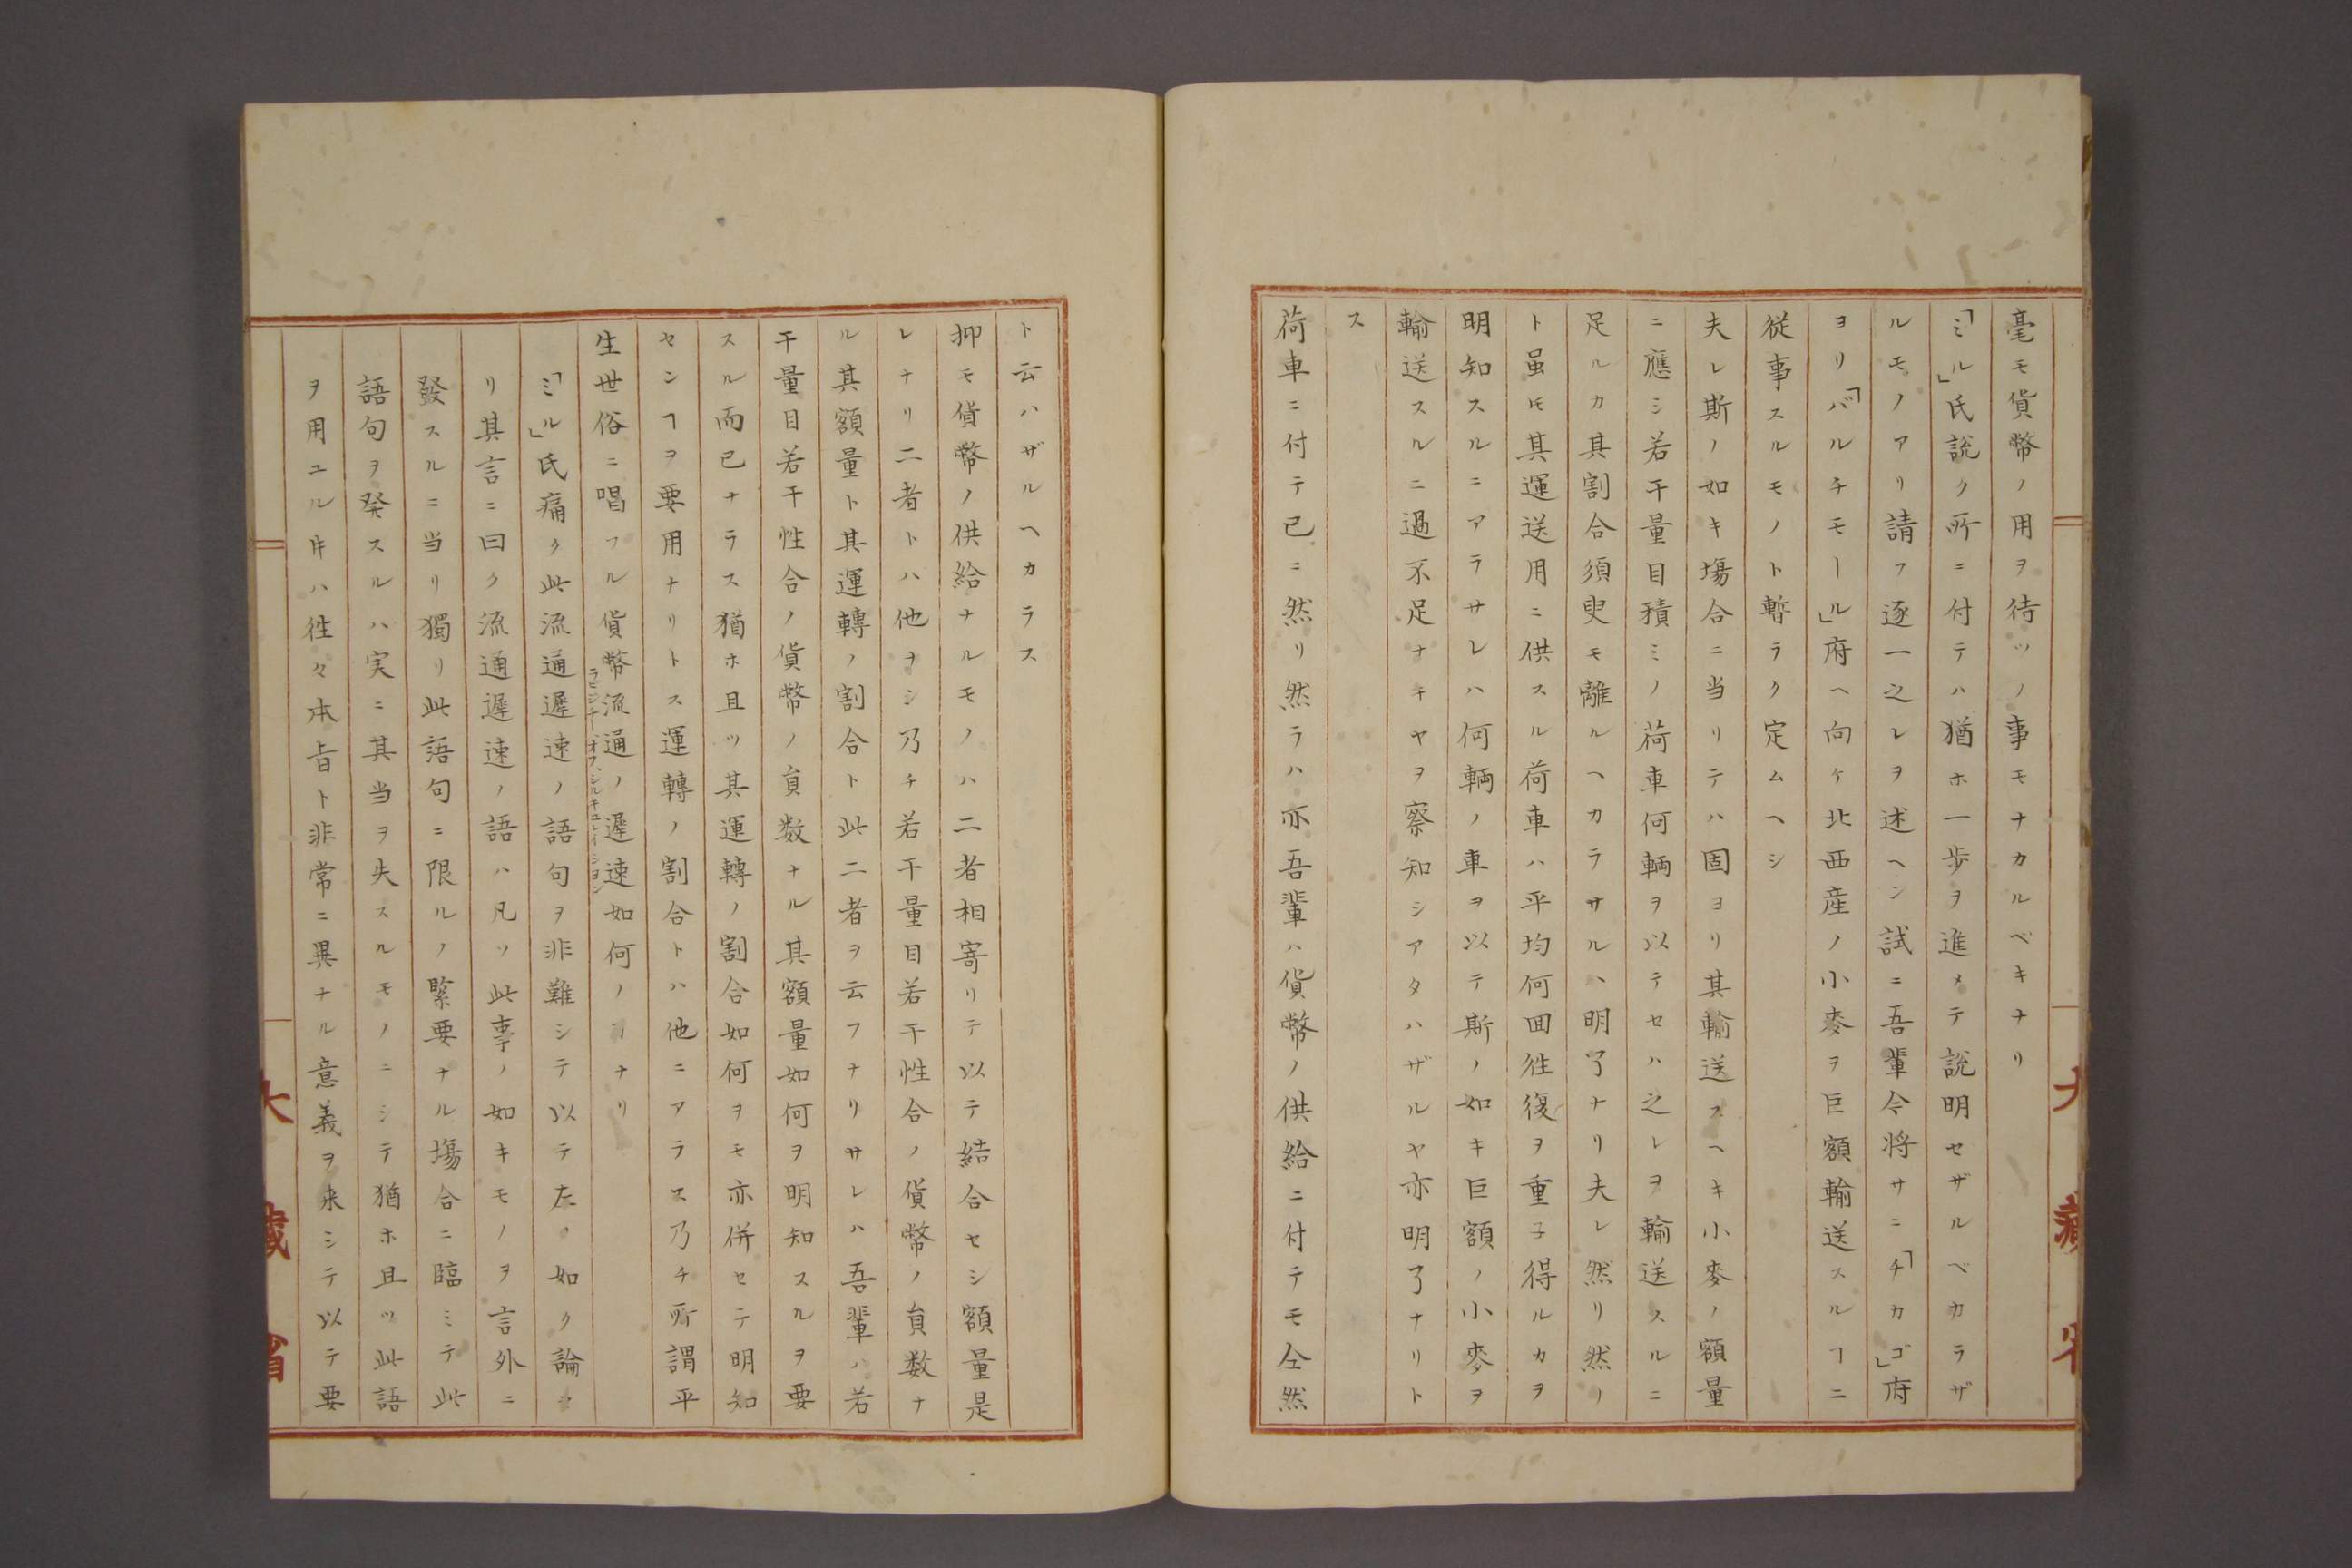 毫モ貨幣ノ用ヲ待ツノ事モナカルベキナリ
「ミル」氏說ク所ニ付テハ猶ホ一歩ヲ進メテ說明セザルベカラザ
ルモノアリ請フ逐一之レヲ述ヘン試ニ吾輩今将サニ「チカゴ」府
ヨリ「バルチモール」府ヘ向ケ北西産ノ小麥ヲ巨額輸送スルヿニ
從事スルモノト暫ラク定ムヘシ
夫レ斯ノ如キ塲合ニ当リテハ固ヨリ其輸送スヘキ小麥ノ額量
ニ應シ若干量目積ミノ荷車何輌ヲ以テセハ之レヲ輸送スルニ
足ルカ其割合須臾モ離ルヘカラサルハ明了ナリ夫レ然リ然リ
ト虽𪜈其運送用ニ供スル荷車ハ平均何囬徃復ヲ重子得ルカヲ
明知スルニアラサレハ何輌ノ車ヲ以テ斯ノ如キ巨額ノ小麥ヲ
輸送スルニ過不足ナキヤヲ察知シアタハザルヤ亦明了ナリト
ス
荷車ニ付テ已ニ然リ然ラハ亦吾輩ハ貨幣ノ供給ニ付テモ仝然
ト云ハザルヘカラス
抑モ貨幣ノ供給ナルモノハ二者相寄リテ以テ結合セシ額量是
レナリ二者トハ他ナシ乃チ若干量目若干性合ノ貨幣ノ員数ナ
ル其額量ト其運轉ノ割合ト此二者ヲ云フナリサレハ吾輩ハ若
干量目若干性合ノ貨幣ノ員数ナル其額量如何ヲ明知スルヲ要
スル而已ナラス猶ホ且ツ其運轉ノ割合如何ヲモ亦併セテ明知
センヿヲ要用ナリトス運轉ノ割合トハ他ニアラス乃チ所謂平
生世俗ニ唱フル貨幣流通ノ遲速如何ノヿナリ
ラピジチー、オフ、シルキュレイション
「ミル」氏痛ク此流通遲速ノ語句ヲ非難シテ以テ左ノ如ク論セ
リ其言ニ曰ク流通遲速ノ語ハ凡ソ此事ノ如キモノヲ言外ニ
發スルニ当リ獨リ此語句ニ限ルノ緊要ナル塲合ニ臨ミテ此
語句ヲ発スルハ実ニ其当ヲ失スルモノニシテ猶ホ且ツ此語
ヲ用ユル𪜈ハ徃々本旨ト非常ニ異ナル意義ヲ来シテ以テ要
大藏省
大藏省